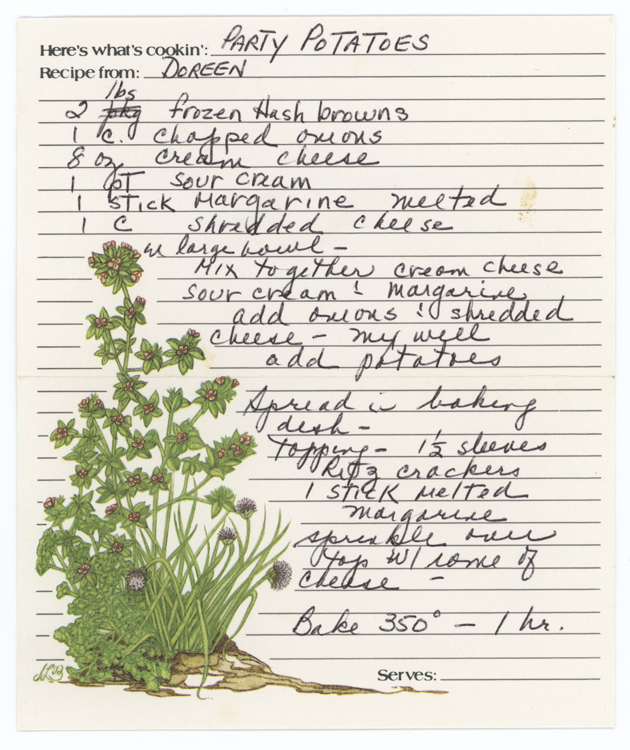 Here's what's cookin': PARTY POTATOES
Recipe from: DOREEN
lbs
2 pkg frozen Hash browns
1 c. chopped onions
8 oz cream cheese
1 PT sour cream
1 STICK MARGARINE melted
1 C shredded cheese
in large bowl -
Mix together cream cheese
sour cream & margarine
add onions & shredded
cheese - mix well
add potatoes
Spread in baking
dish -
Topping - 1½ sleeves
Ritz crackers
1 STICK melted
margarine
sprinkle over
top w/ some of
cheese -
Bake 350° - 1 hr.
Serves: